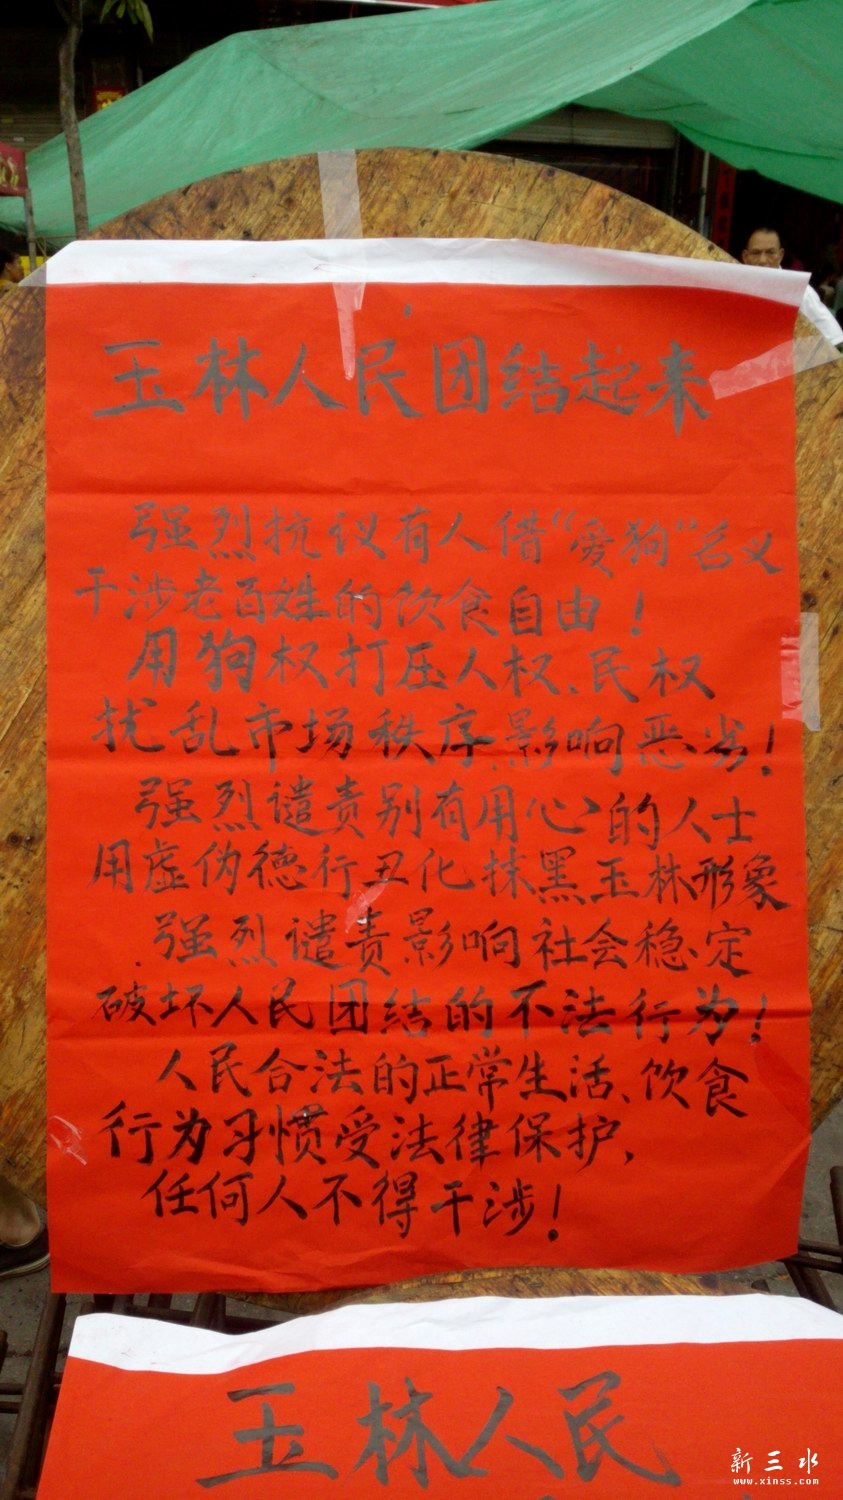 玉林人民团结起来
强烈抗议有人借“爱狗”名义
干涉老百姓的饮食自由！
用狗权打压人权、民权
扰乱市场秩序,影响恶劣！
强烈谴责别有用心的人士
用虚伪德行丑化抹黑玉林形象
强烈谴责影响社会稳定
破坏人民团结的不法行为！
人民合法的正常生活、饮食
行为习惯受法律保护,
任何人不得干涉！
玉林人民
新三水
www.xinss.com